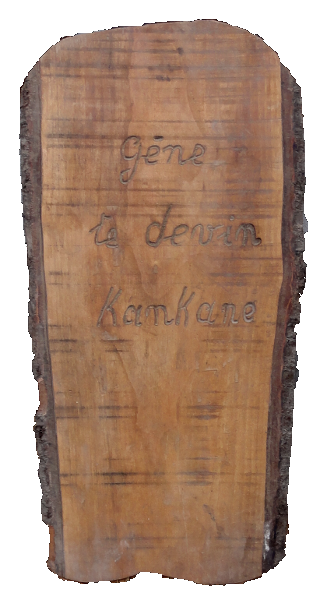 Géne
le devin
KanKane